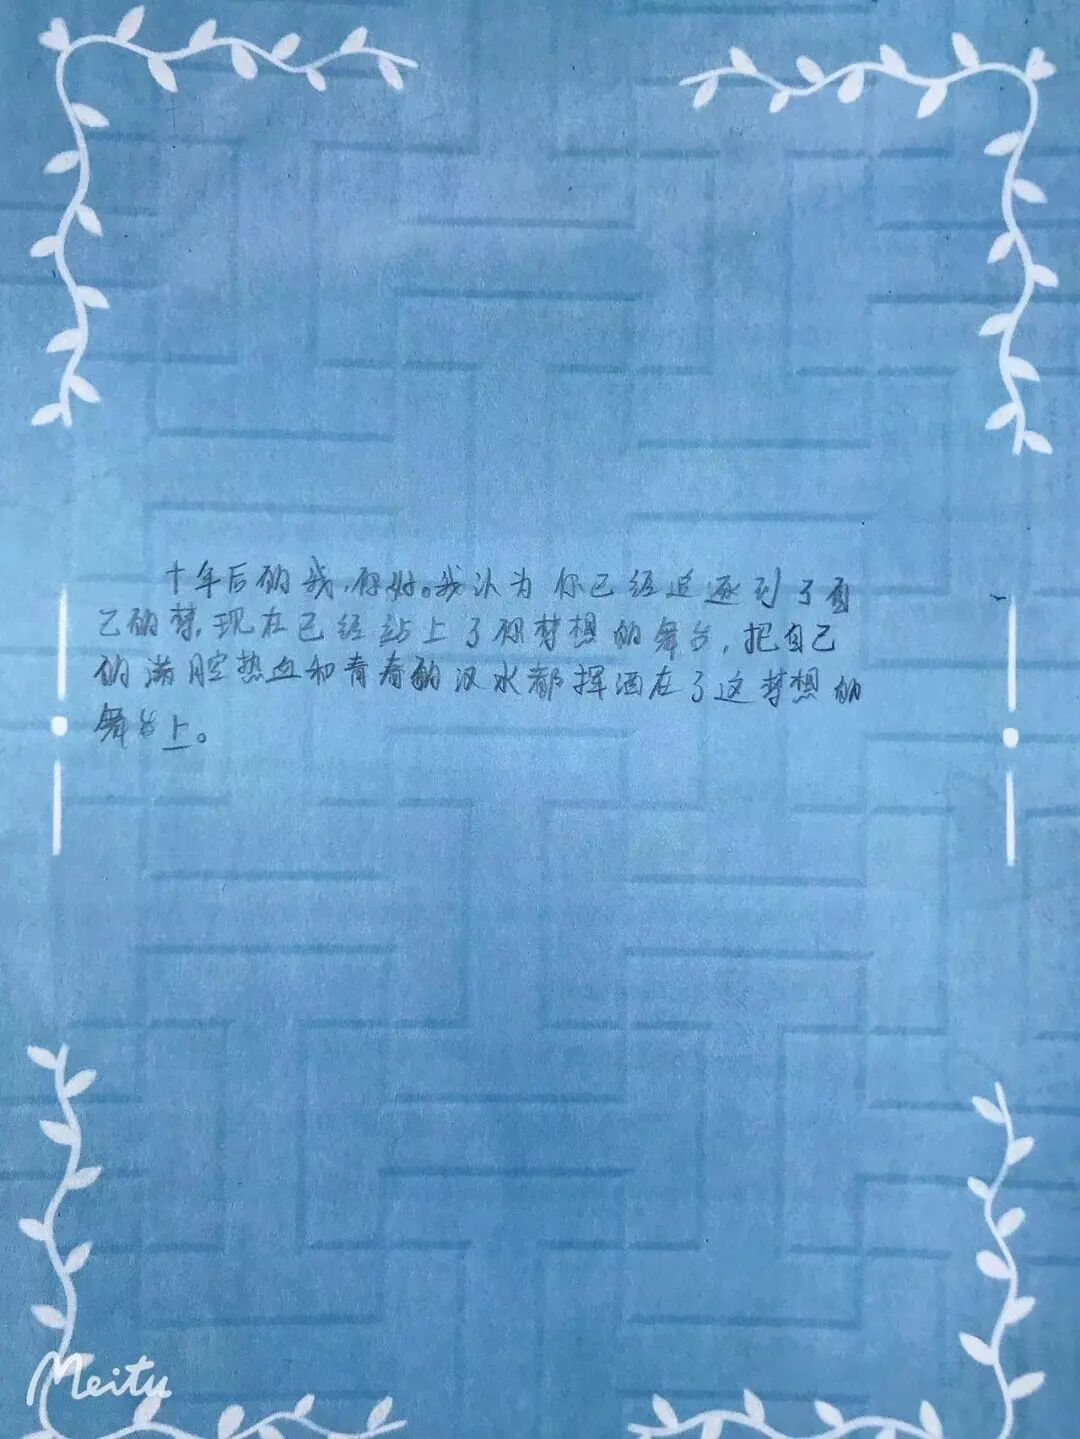 十年后的我,你好。我认为你已经追逐到了自
己的梦,现在已经站上了你梦想的舞台,把自己
的满腔热血和青春的汉水都挥洒在了这梦想的
舞台上。
Meitu